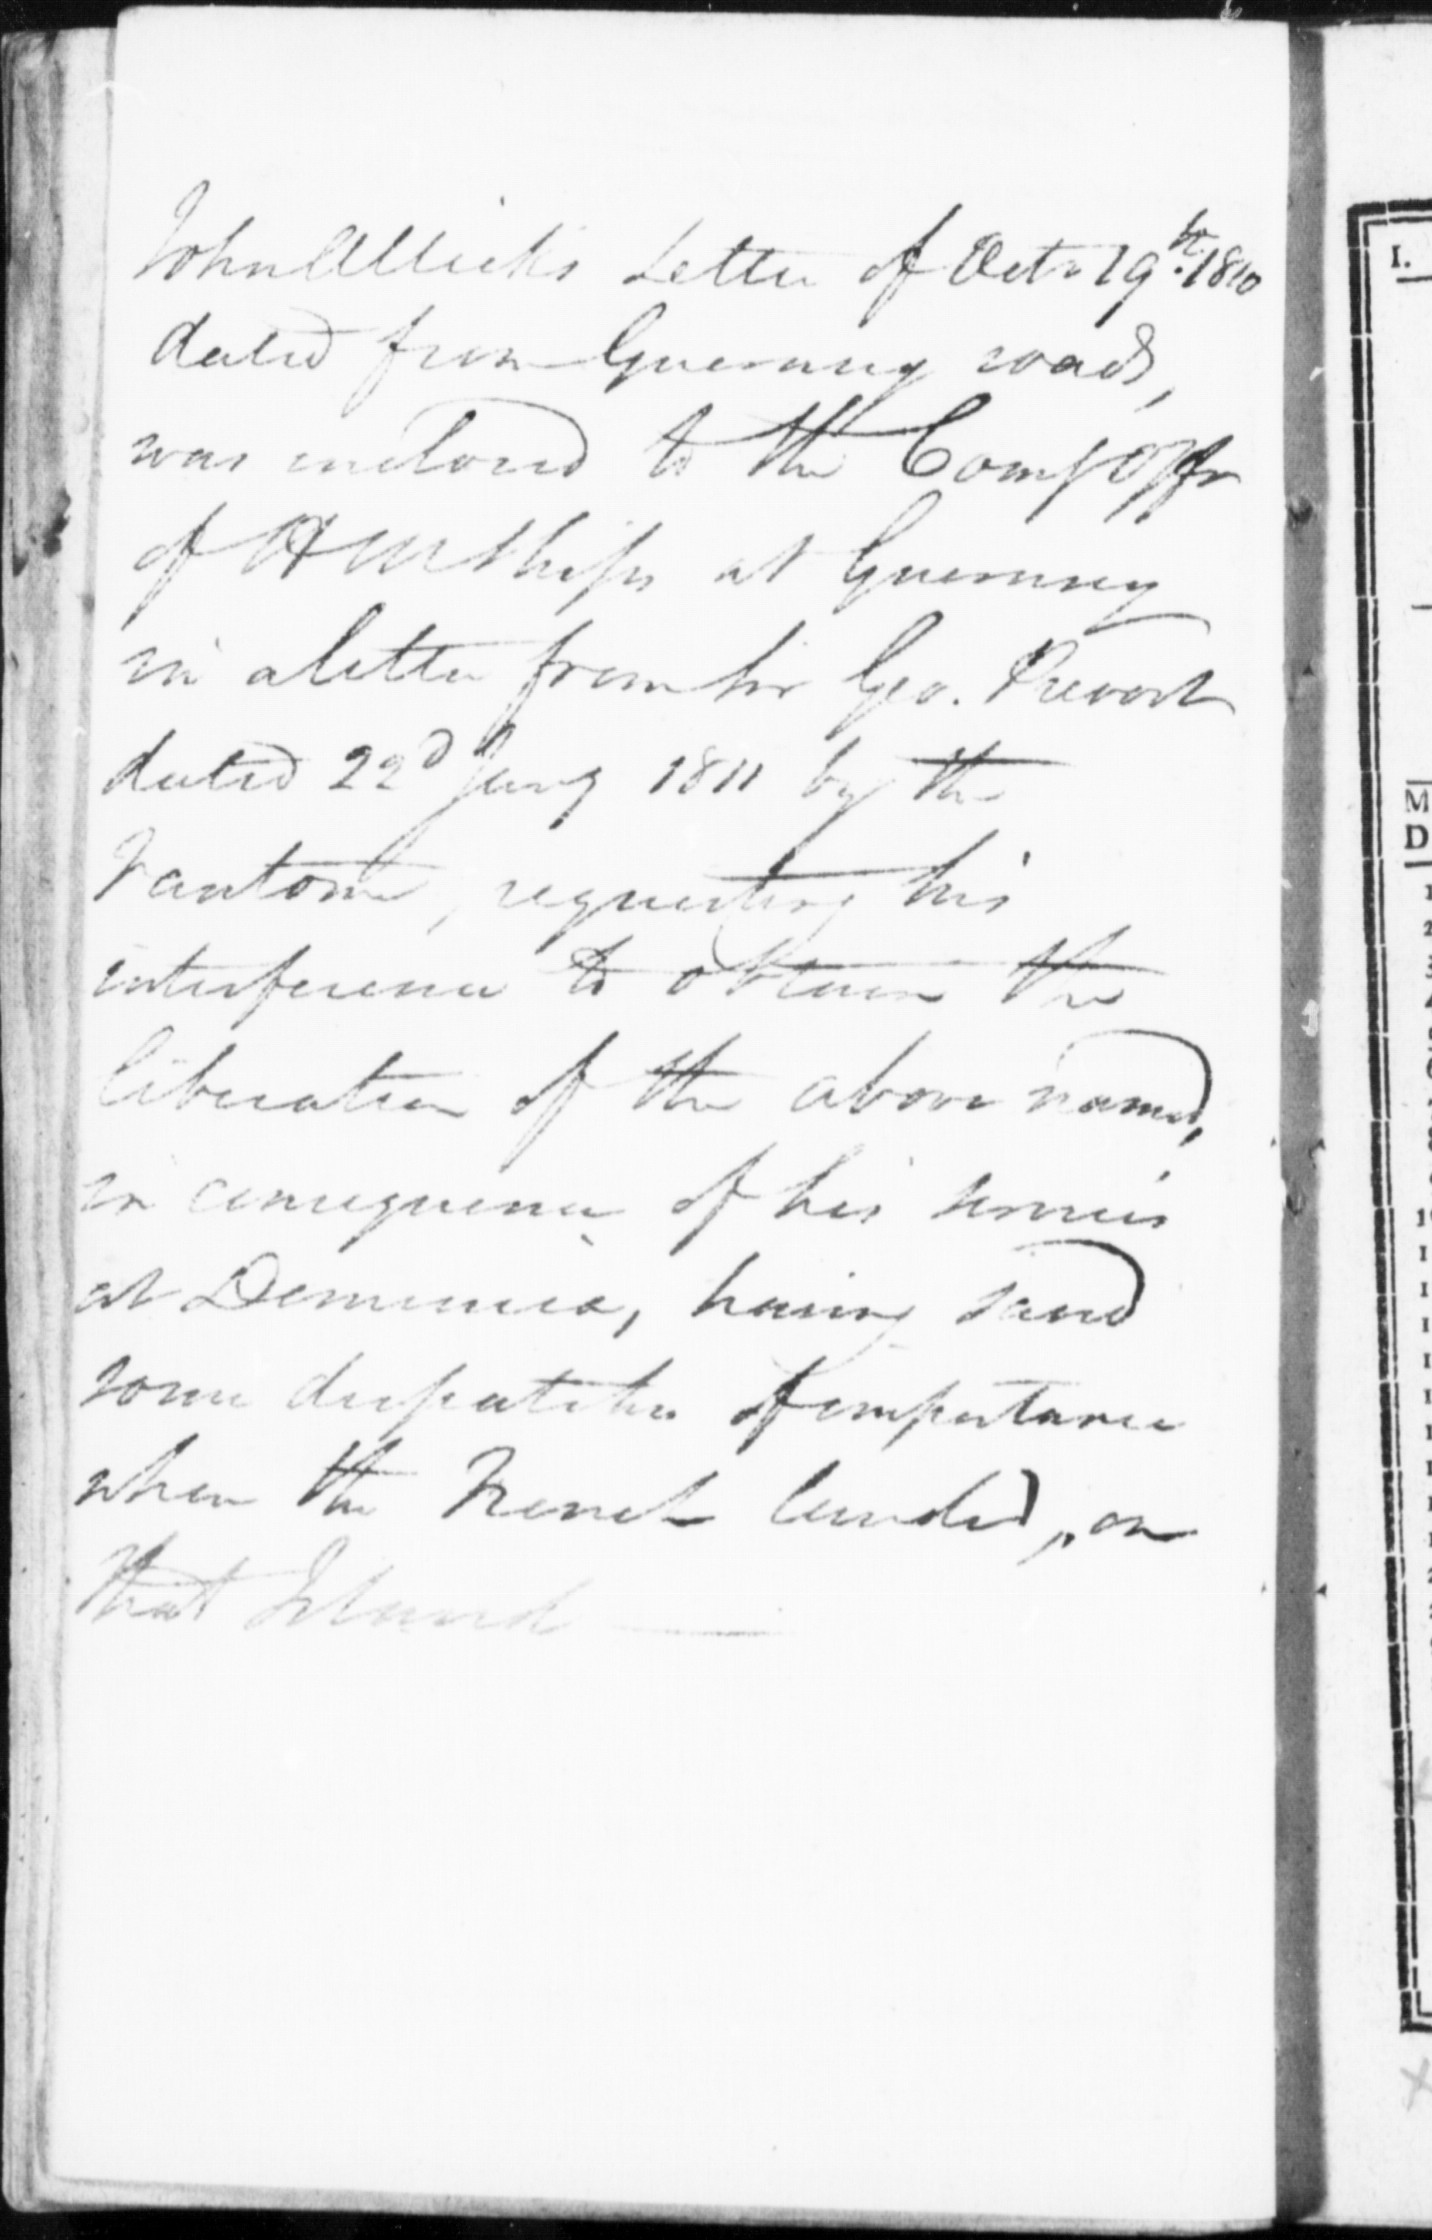 John Letter of Octr 19th. 1810
dated from Guernsey roads,
was inclosed to the Comg Offr
of HM Ships at Guernsey
in a letter from Sir Geo. Prevost
dated 22d Jany 1811 by the
Fantome, requesting his
interference to obtain the
liberation of the above named,
in consequence of his services
at Dominica, having saved
some dispatches of importance
when the French landed, on
that Island
I.
M
D